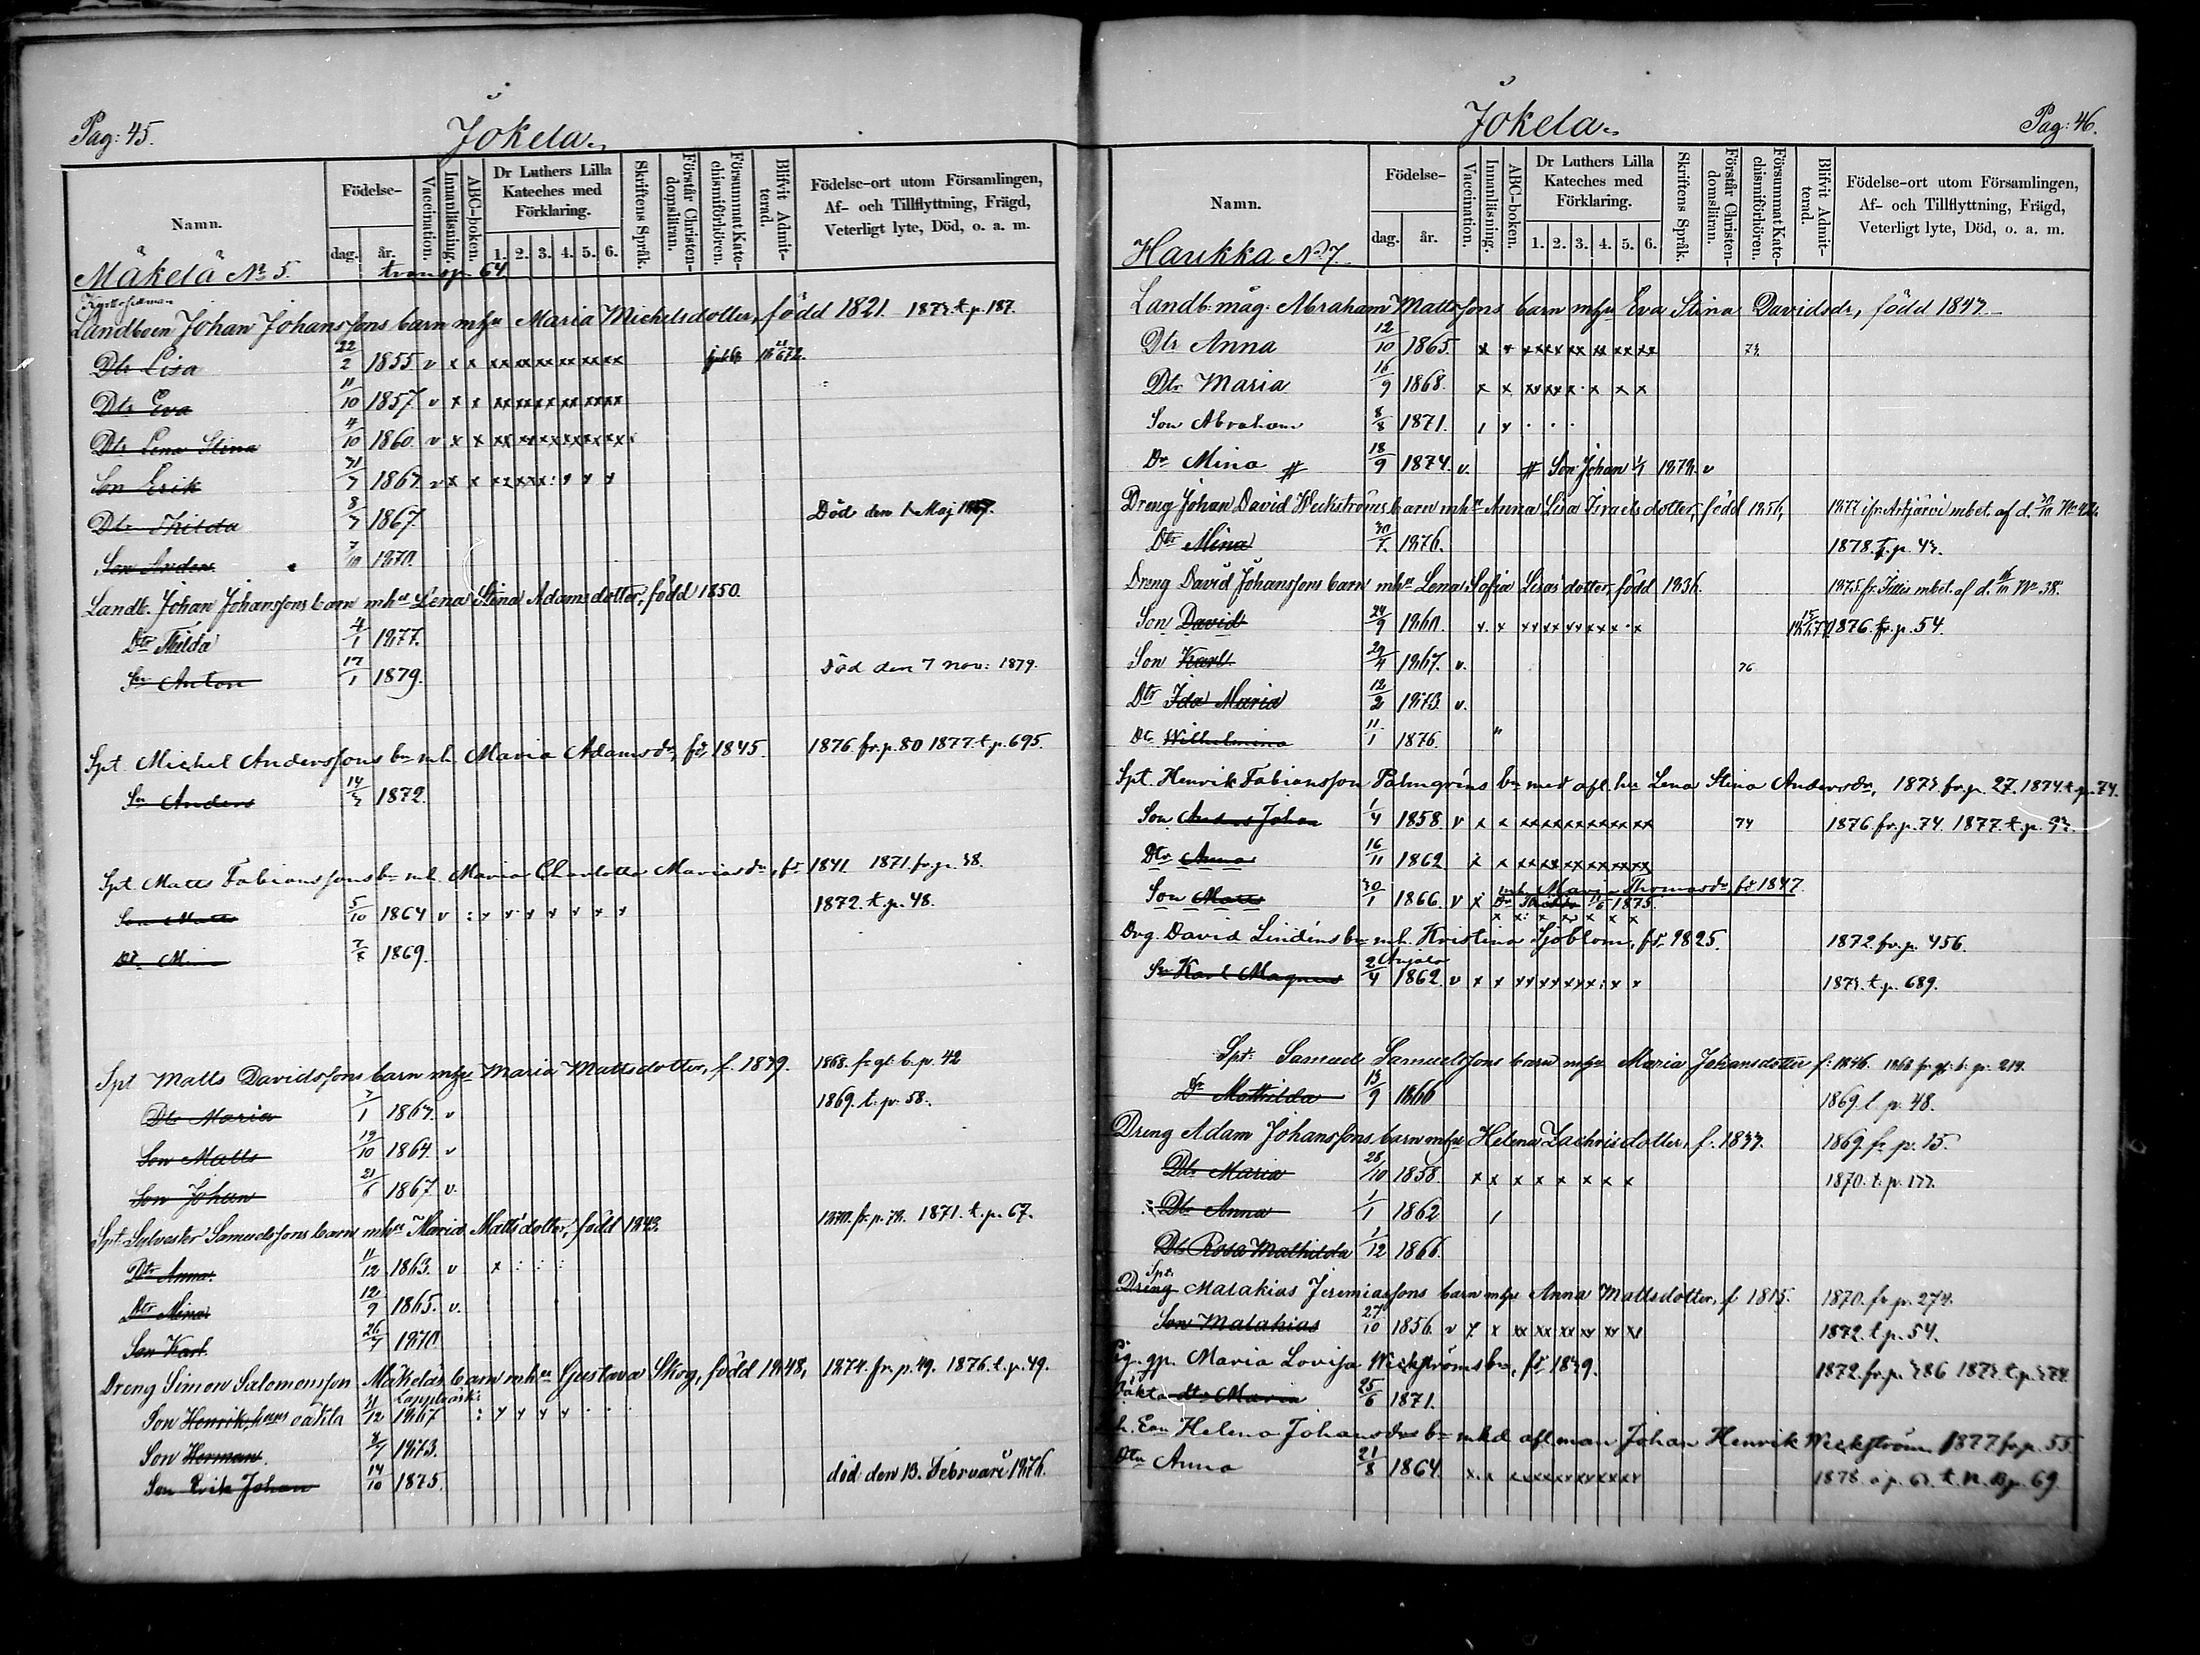 Pag: 45.
Jokela
Namn.
Födelse-
dag.
år.
Vaccination.
Innanläsning.
ABC-boken.
Dr Luthers Lilla Kateches med Förklaring.
1. 2. 3. 4. 5. 6.
Skriftens Språk.
Förstår Christendomsläran.
Försummat Katechismiförhören.
Blifvit Admitterad.
Födelse-ort utom Församlingen, Af- och Tillflyttning, Frägd, Veterligt lyte, Död, o. a. m.
Mäkelä No 5. transp. 64
Landboen Johan Johanssons barn mhu Maria Michelsdotter, född 1821. 1873 t. p. 187.
Dtr Lisa 22/2 1855 v x x
Dtr Eva 11/10 1857 v x x
Dtr Lena Stina 4/10 1860 v x x
Son Erik 1863 v x x
Dtr Thilda 1867 Död den 1 Maj
Son Anders 1870.
Landb. Johan Johanssons barn mhu Lena Stina Adamsdotter, född 1850.
Dtr Thilda 4/1 1877.
Sn Anton 17/1 1879. Död den 7 nov: 1879.
Spt. Michel Anderssons bn mh. Maria Adamsdr, fd. 1845. 1876 fr. p. 80 1877 t. p. 695.
Sn Anders 14/3 1872.
Spt. Matts Fabianssons bn mh. Maria Charlotta Mariasdr, fd. 1841 1871. fr. p. 38.
Son Matts 5/10 1864 v 1872. t. p. 48.
Dr 1869.
Spt Matts Davidssons barn mhu Maria Mattsdotter, f. 1839. 1868. fr gl. b. p. 42
Dtr Maria 1863. v 1869. t. p. 58.
Son Matts 19/10 1864 v
Son Johan 21/6 1867 v.
Spt. Sylvester Samuelssons barn mhu Maria Mattsdotter, född 1843. 1871. t. p. 67.
Dtr Anna. 11/12 1863. v x
Dtr Mina 12/9 1865. v.
Son Karl. 1870
Dreng Simon Salomonsson Mäkeläs barn mhu Gustava Skog, född 1848, 1874. fr. p. 49. 1876. t. p. 49.
Lappträsk
Son Henrik, hans oäkta 1867
Son Herman. 1873.
Son Erik Johan 14/10 1875. död den 13. Februari 1876.
Jokela
Pag: 46.
Namn.
Födelse-
dag.
år.
Vaccination.
Innanläsning.
ABC-boken.
Dr Luthers Lilla Kateches med Förklaring.
1. 2. 3. 4. 5. 6.
Skriftens Språk.
Förstår Christendomsläran.
Försummat Katechismiförhören.
Blifvit Admitterad.
Födelse-ort utom Församlingen, Af- och Tillflyttning, Frägd, Veterligt lyte, Död, o. a. m.
Haukka No 7.
Landb. måg. Abraham Mattssons barn mhu Eva Stina Davidsdr, född 1843.
Dtr Anna 12/10 1865. 73
Dtr Maria 16/9 1868.
Son Abraham 8/8 1871.
Dr Mina # 18/9 1874. v. # Son Johan 1878. v
Dreng Johan David Weckströms barn mhu Anna Lisa Israelsdotter, född 1856, 1877 ifr. Artjärvi mbet. af d.
Dtr Mina 1876. 1878. t. p. 43.
Dreng David Johanssons barn mhu Lena Sofia Lisasdotter, född 1836. 1875. fr. Iittis mbet. af d. No 38.
Son David 24/9 1860. 1876. t. p. 54.
Son Karl 29/4 1867. v. 76
Dtr Ida Maria 12/2 1873 v.
Dr Wilhelmina 11/1 1876.
Spt. Henrik Fabiansson Palmgréns bn med afl. hu Lena Stina Andersdr, 1873 fr. p. 27. 1874 t. p. 74.
Son Anders Johan 1/4 1858 v x x 74 1876 fr. p. 74. 1877. t. p. 93.
Dtr Anna 16/11 1862 x x
Son Matts 30/1 1866. v x mh. Maria Thomasdr fd. 1847.
1875.
Drg. David Lindéns bn mh. Kristina Sjöblom, fd. 1825. 1872 fr. p. 456.
Anjala
Sn Karl Magnus 2/4 1862 v x x 1873. t. p. 689.
Spt. Samuel Samuelssons barn mhu Maria Johansdotter f. 1846. 1868 fr. gl. b. p. 219.
Dr Mathilda 13/9 1866 1869. t. p. 48.
Dreng Adam Johanssons barn mhu Helena Zachrisdotter, f. 1833. 1869. fr p. 15.
Dtr Maria 28/10 1858. 1870. t. p. 177.
Dtr Anna 1/1 1862
Dtr Rosa Mathilda 1/12 1866.
Spt.
Dreng Malakias Jeremiassons barn mhu Anna Mattsdotter, f 1815. 1870. fr p. 274.
Son Malakias 27/10 1856. v x x 1872. t. p. 54.
Pig. gp. Maria Lovisa Weckströms bn, fd. 1839. 1872. fr. p. 386 1873. t. p. 374.
Oäkta dtr Maria 25/6 1871.
Helena Johansdrs bn mhd afl. man Johan Henrik Weckström 1877 fr. p. 55.
Dtr Anna 21/8 1864. 69.